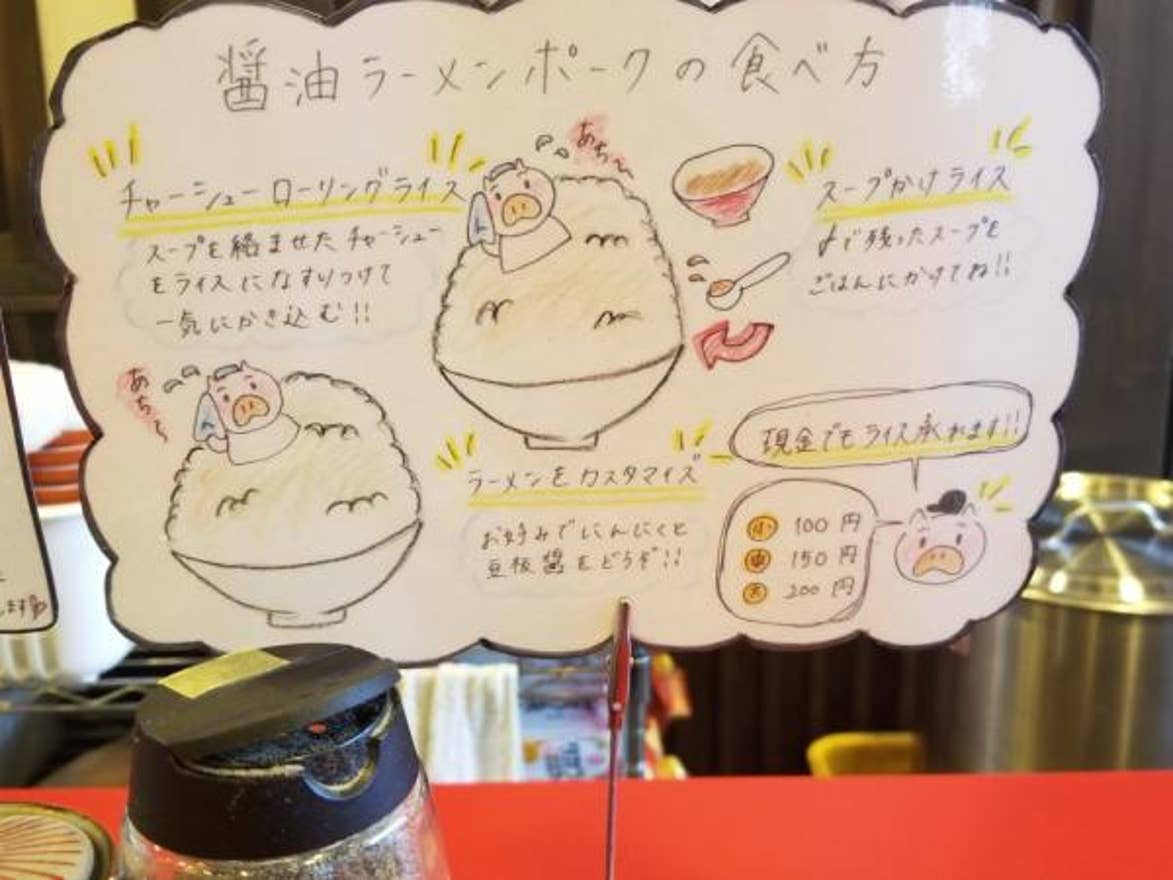 醤油ラーメンポークの食べ方
チャーシューローリングライス
スープを絡ませたチャーシュー
をライスになすりつけて
一気にかき込む!!
あち〜
スープかけライス
〆で残ったスープを
ごはんにかけてね!!
あち〜
ラーメンをカスタマイズ
お好みでにんにくと
豆板醤をどうぞ!!
現金でもライス承れます!!
小 100円
中 150円
大 200円
ます